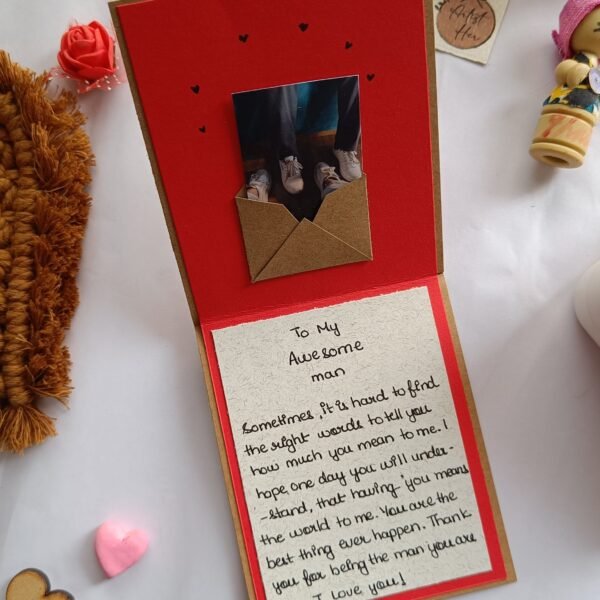 Artist
Her
To My
Awesome
man
Sometimes, it is hard to find
the right words to tell you
how much you mean to me. I
hope one day you will under-
-stand, that having 'you means
the world to me. You are the
best thing ever happen. Thank
you for being the man you are
I love you!